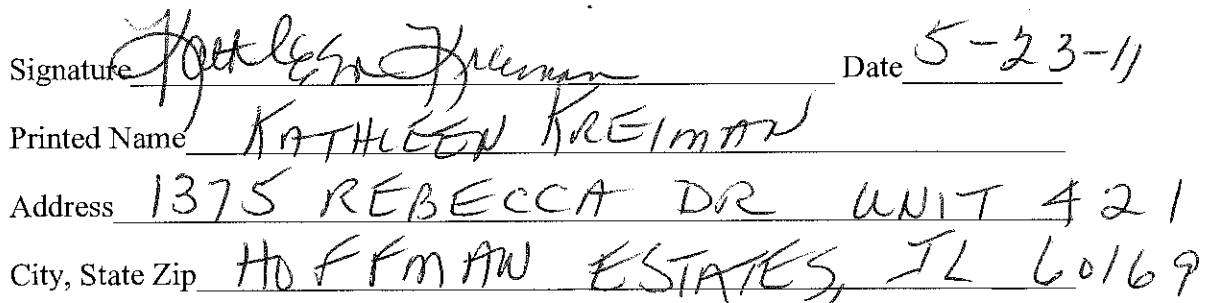 Signature Kathleen Kreiman Date 5-23-11
Printed Name KATHLEEN KREIMAN
Address 1375 REBECCA DR UNIT 421
City, State Zip HOFFMAN ESTATES, IL 60169